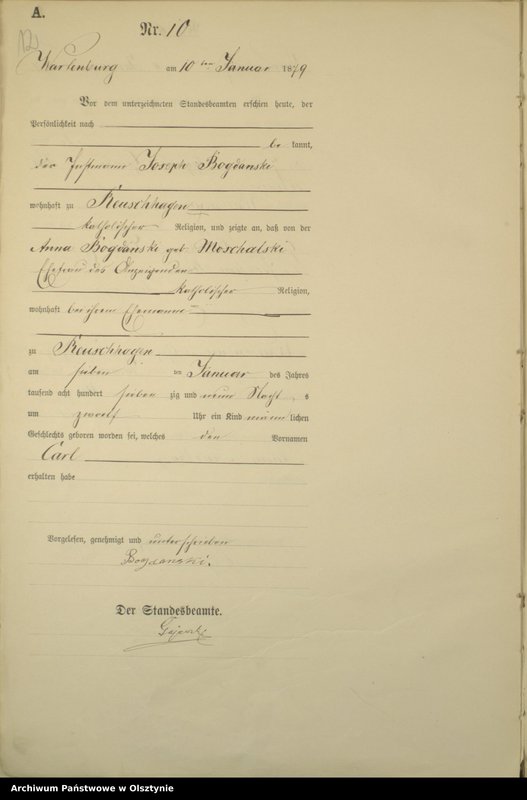 A.
Nr. 10
Wartenburg am 10ten Januar 1879
Vor dem unterzeichneten Standesbeamten erschien heute, der
Persönlichkeit nach
be kannt,
der Instmann Joseph Bogdanski
wohnhaft zu Reuschhagen
katholischer Religion, und zeigte an, daß von der
Anna Bogdanski geb Moschalski
Ehefrau des Anzeigenden
katholischer Religion,
wohnhaft bei ihrem Ehemanne
zu Reuschhagen
am sieben ten Januar des Jahres
tausend acht hundert sieben zig und neun Nacht s
um zwölf Uhr ein Kind männ lichen
Geschlechts geboren worden sei, welches den Vornamen
Carl
erhalten habe
Vorgelesen, genehmigt und unterschrieben
Bogdanski.
Der Standesbeamte.
Archiwum Państwowe w Olsztynie